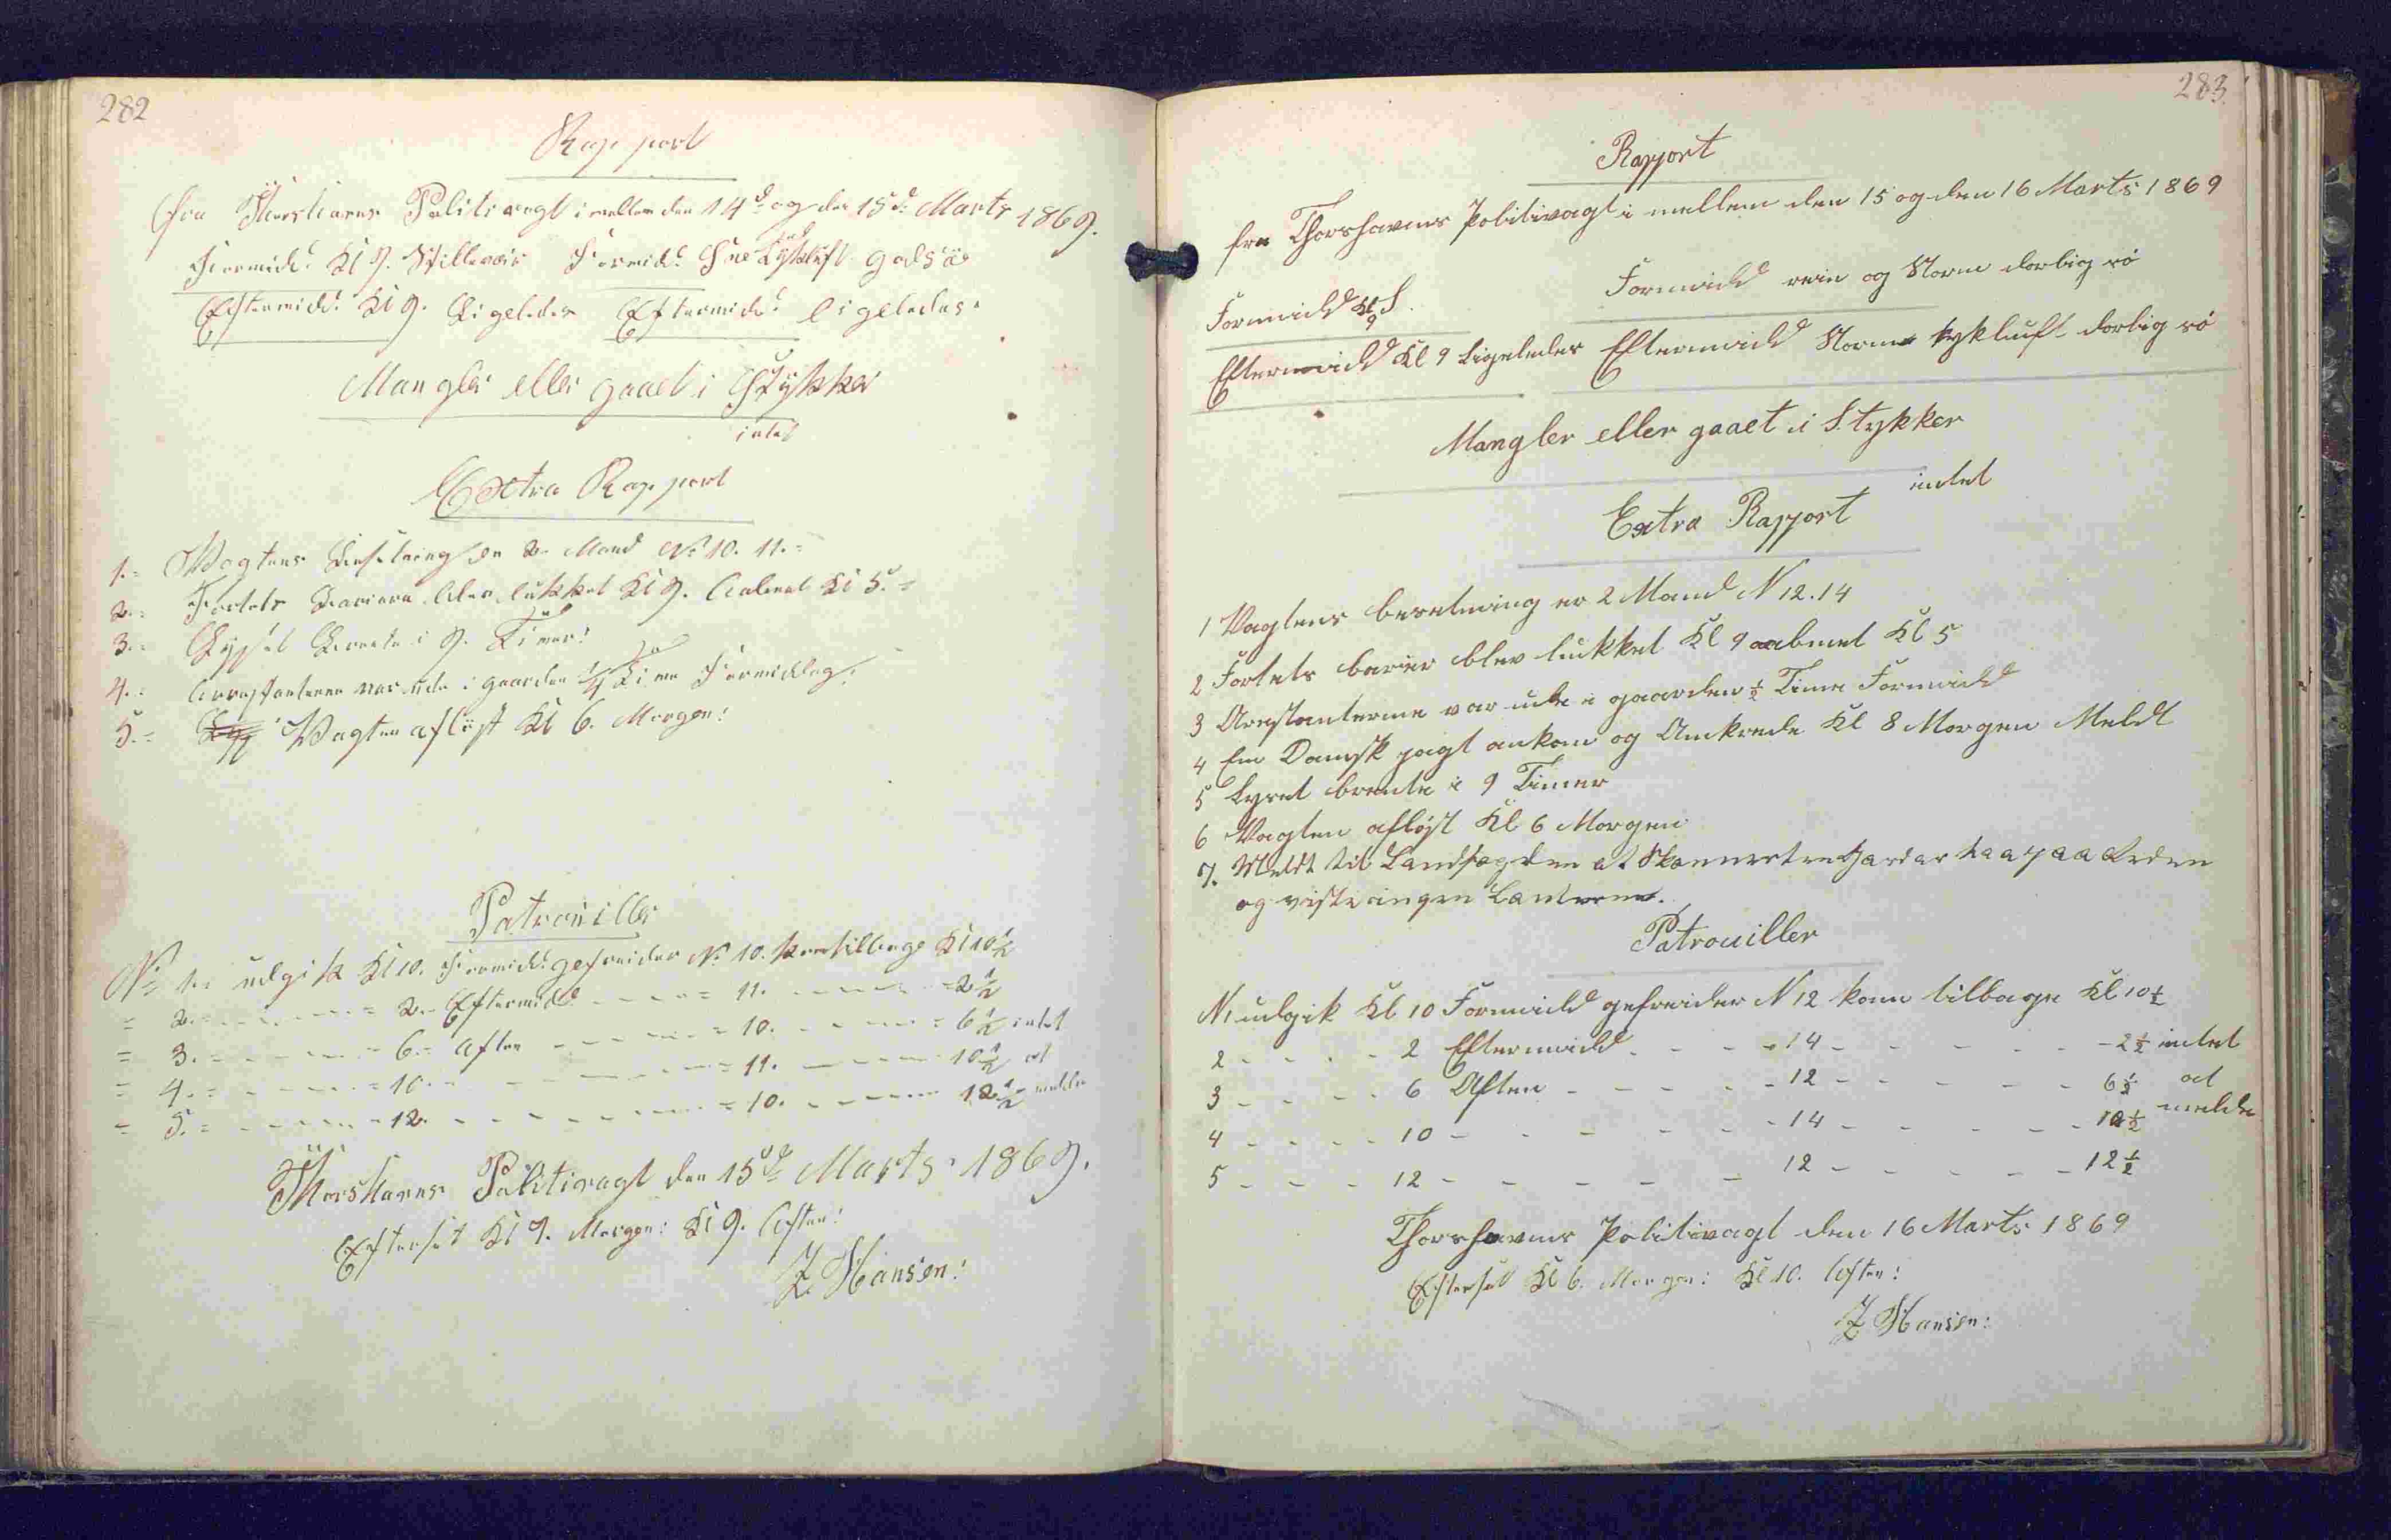 282
Rapport
fra Thorshavns Politivagt imellem den 14de og den 15de Marts 1869.
Formidd. Kl 9. Stilleveir Formidd. Sne Tykluft god Sö
Eftermidd. Kl 9. Ligeledes Eftermidd. ligeledes.
Mangler eller gaaet i Stykker
intet
Extra Rapport
1. Vagtens Besetning er 2 Mand No 10. 11.
2. Fortets Bariere blev lukket Kl 9. Aabnet Kl 5.
3. Lyset brente i 9. Timer:
4. Arrestanterne var ude i gaarden Time Formiddag:
5. Vagten aflöst Kl 6. Morgen:
Patrouiller
No 1. udgik Kl 10. Formidd. gefreider No 10. kom tilbage Kl 10½
= 2. - - - 2. Eftermidd. - - - 11. - - - 2½
= 3. - - - 6. Aften - - - 10. - - - 6½ intet
= 4. - - - 10. - - - 11. - - - 10½ at
= 5. - - - 12. - - - 10. - - - 12½ melde
Thorshavns Politivagt den 15de Marts 1869.
Efterset Kl 9. Morgen: Kl 9. Aften:
Z Hansen:
283
Rapport
fra Thorshavns Politivagt i mellem den 15 og den 16 Marts 1869
Formidd Kl 9 Formidd rein og Storm dorlig sö
Eftermidd Kl 9 Ligeledes Eftermidd Storm tykluft dorlig sö
Mangler eller gaaet i Stykker
intet
Extra Rapport
1 Vagtens besetning er 2 Mand N 12. 14
2 Fortets barier blev lukket Kl 9 aabnet Kl 5
3 Arestanterne var ude i gaarden ½ Time Formidd
4 En Dansk jagt ankom og Ankrede Kl 8 Morgen Meldt
5 Lyset brente i 9 Timer
6 Vagten aflöst Kl 6 Morgen
7. Meldt til Landfogden at Skonnerten laa paa Reden
og viste ingen Lanterne.
Patrouiller
N 1 udgik Kl 10 Formidd gefreider N 12 kom tilbage Kl 10½
2 - - - 2 Eftermidd - - - 14 - - - 2½ intet
3 - - - 6 Aften - - - 12 - - - 6½ at
4 - - - 10 - - - 14 - - - 10½ melde
5 - - - 12 - - - 12 - - - 12½
Thorshavns Politivagt den 16 Marts 1869
Efterset Kl 6. Morgen: Kl 10. Aften:
Z Hansen: